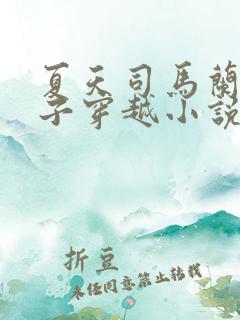 夏天司馬蘭
子穿越小說
折豆
未经同意禁止转载